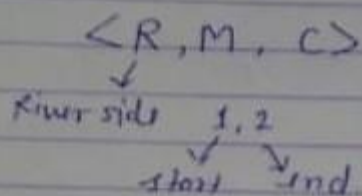 <R, M, C>
River side 1, 2
start end